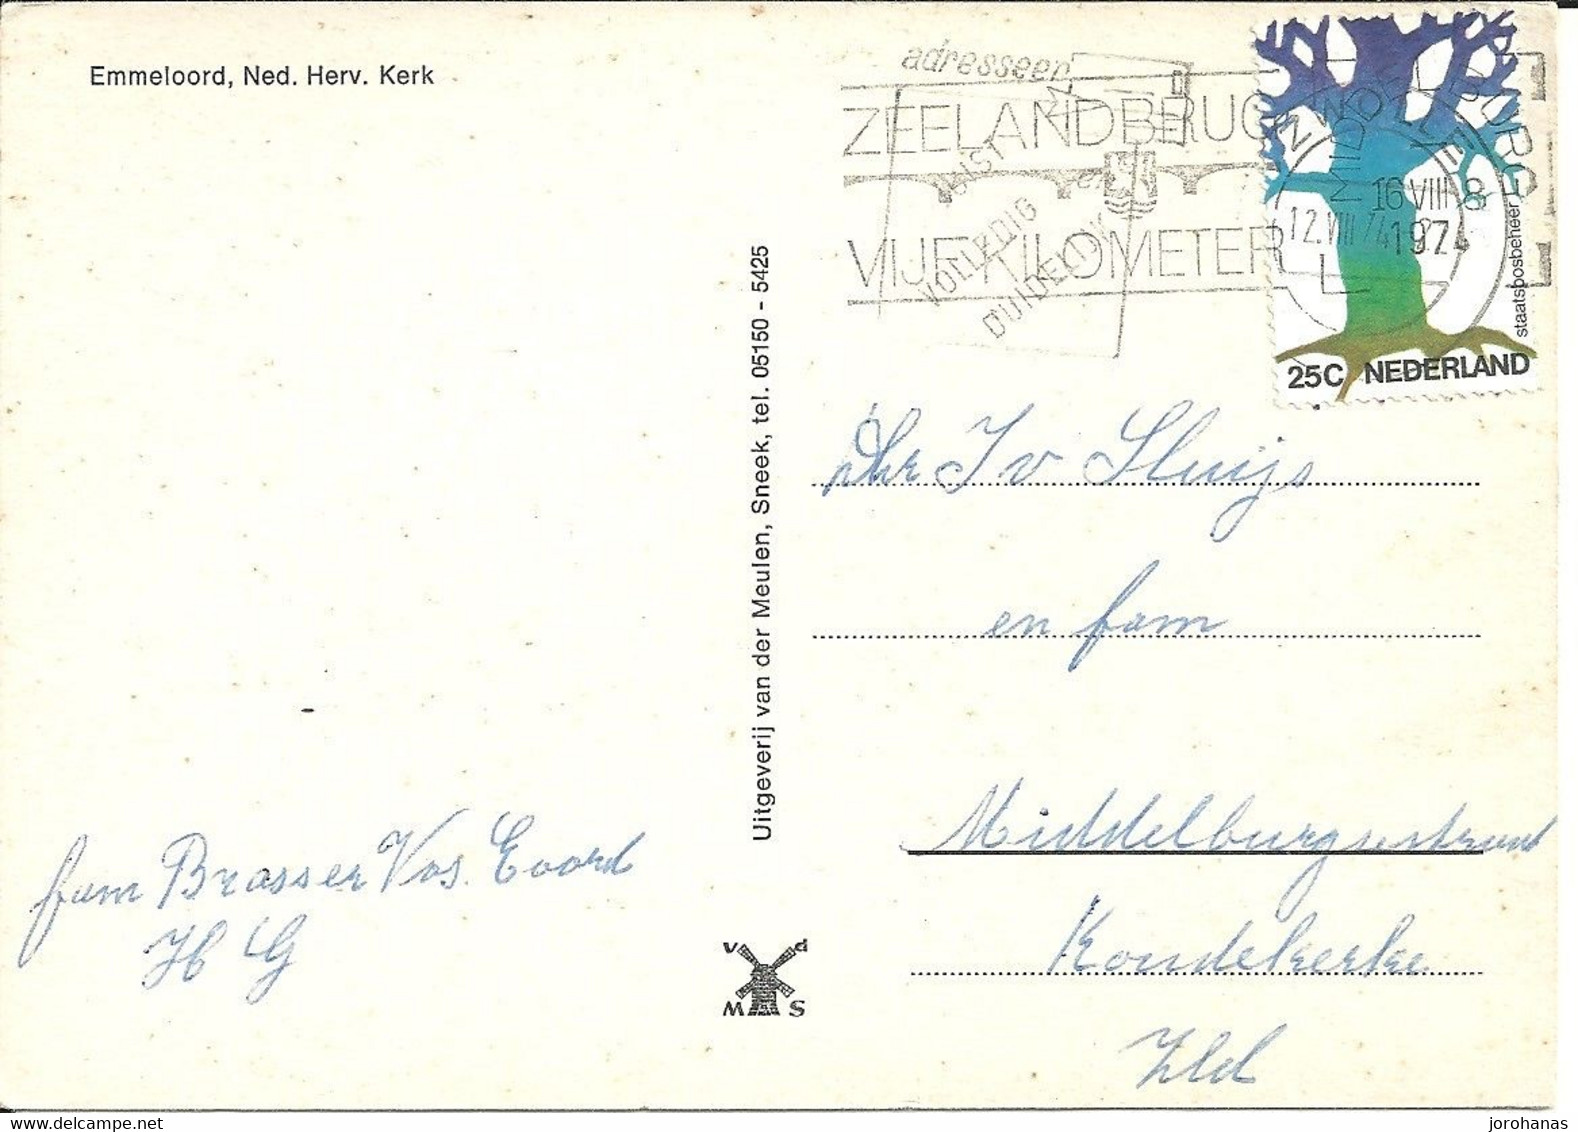 Emmeloord, Ned. Herv. Kerk
adresseer
JUIST
VOLLEDIG
en
DUIDELIJK
ZEELANDBRUG
VIJF KILOMETER
MIDDELBURG
16 VIII 8
1974
12.VIII 74
staatsbosbeheer
25C NEDERLAND
Uitgeverij van der Meulen, Sneek, tel. 05150 - 5425
dhr J v Sluijs
en fam
Middelburgsestraat
Koudekerke
Zld
fam Brasser Vos. Eoord
H G
v d
M S
jorohanas